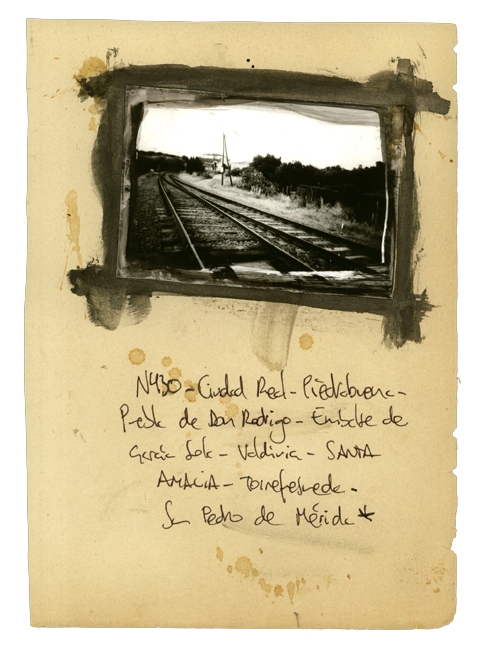 N430 - Ciudad Real - Piedrabuena -
Puebla de Don Rodrigo - Embalse de
García Sola - Valdivia - SANTA
AMALIA - Torrefresneda -
San Pedro de Mérida *